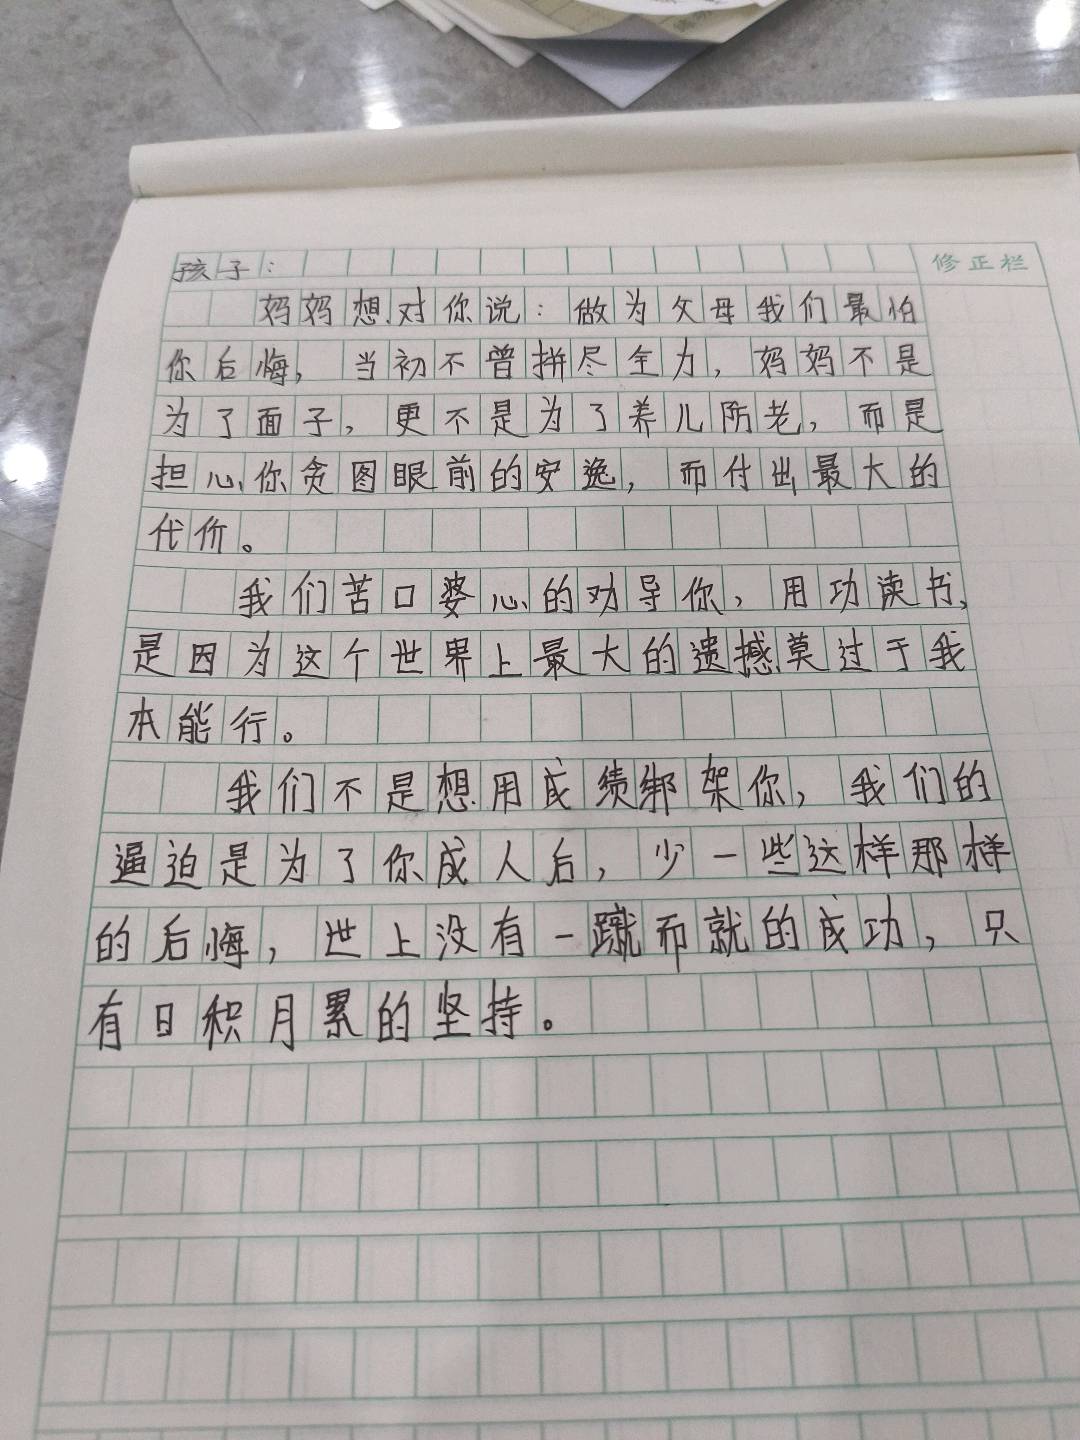 孩子：
修正栏
妈妈想对你说：做为父母我们最怕
你后悔，当初不曾拼尽全力，妈妈不是
为了面子，更不是为了养儿防老，而是
担心你贪图眼前的安逸，而付出最大的
代价。
我们苦口婆心的劝导你，用功读书，
是因为这个世界上最大的遗憾莫过于我
本能行。
我们不是想用成绩绑架你，我们的
逼迫是为了你成人后，少一些这样那样
的后悔，世上没有一蹴而就的成功，只
有日积月累的坚持。